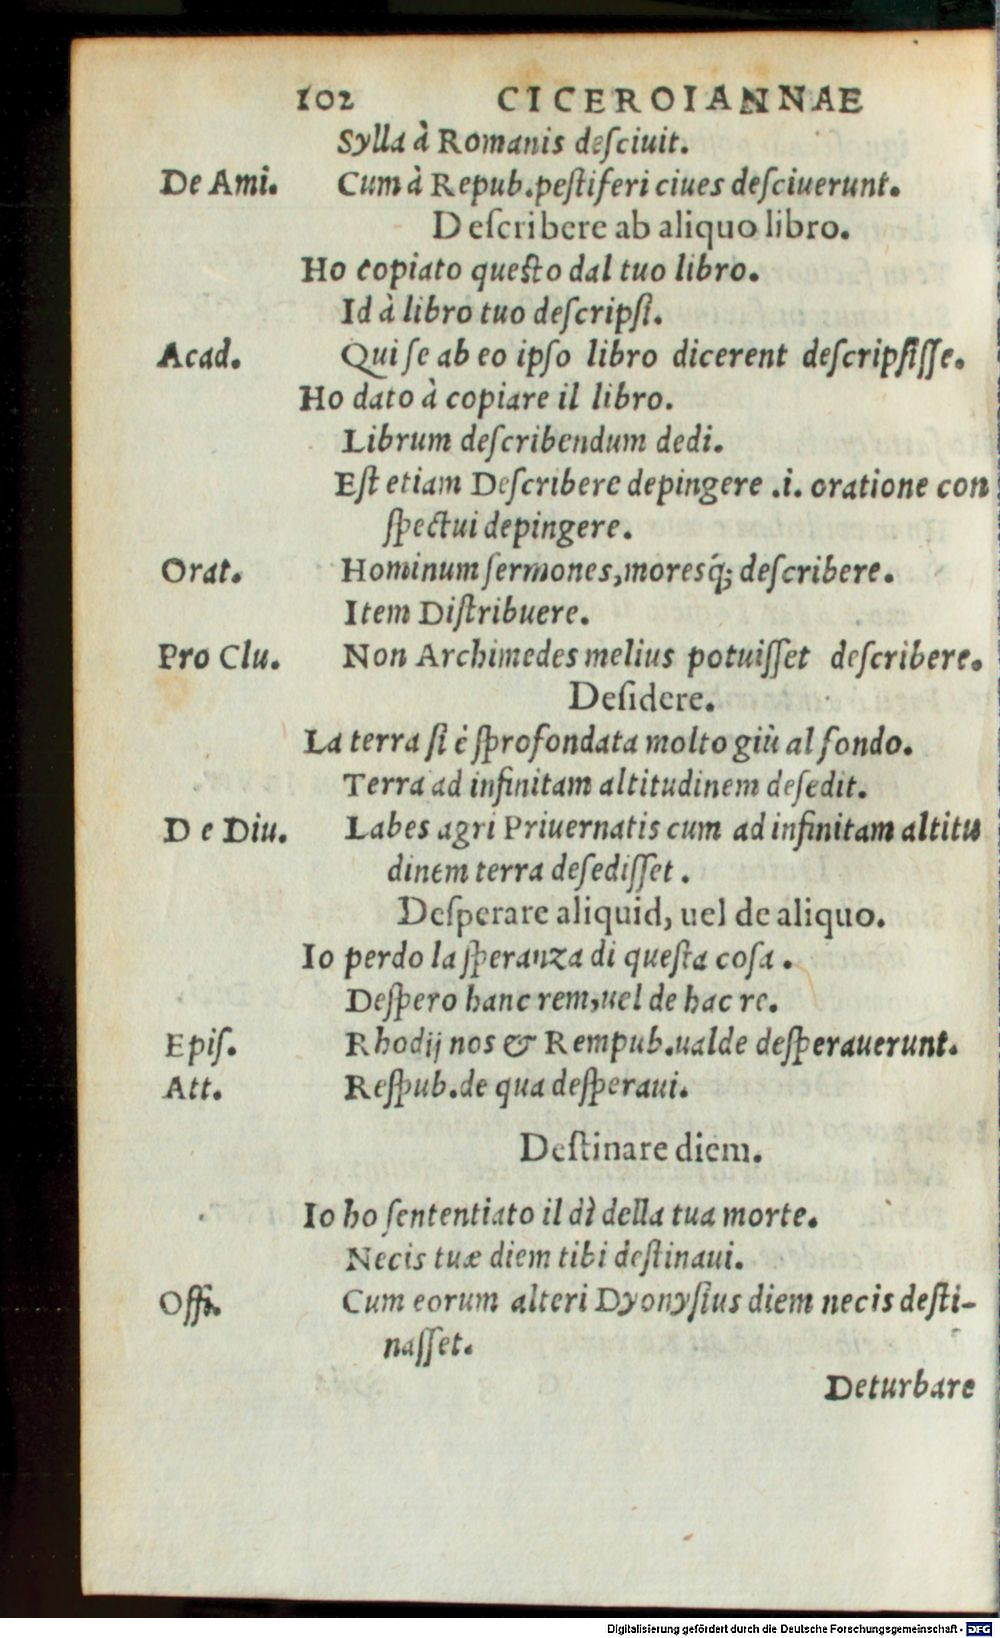 102 CICEROIANNAE
Sylla à Romanis deſciuit.
De Ami. Cum à Repub.peſtiferi ciues deſciuerunt.
Deſcribere ab aliquo libro.
Ho copiato queſto dal tuo libro.
Id à libro tuo deſcripſi.
Acad. Qui ſe ab eo ipſo libro dicerent deſcripſiſſe.
Ho dato à copiare il libro.
Librum deſcribendum dedi.
Eſt etiam Deſcribere depingere .i. oratione con
ſpectui depingere.
Orat. Hominum ſermones,moresq́; deſcribere.
Item Diſtribuere.
Pro Clu. Non Archimedes melius potuiſſet deſcribere.
Deſidere.
La terra ſi è ſprofondata molto giù al fondo.
Terra ad infinitam altitudinem deſedit.
De Diu. Labes agri Priuernatis cum ad infinitam altitu
dinem terra deſediſſet.
Deſperare aliquid, uel de aliquo.
Io perdo la ſperanza di queſta coſa.
Deſpero hanc rem,uel de hac re.
Epiſ. Rhodij nos & Rempub.ualde deſperauerunt.
Att. Reſpub.de qua deſperaui.
Deſtinare diem.
Io ho ſententiato il dì della tua morte.
Necis tuæ diem tibi deſtinaui.
Offi. Cum eorum alteri Dyonyſius diem necis deſti-
naſſet.
Deturbare
Digitalisierung gefördert durch die Deutsche Forschungsgemeinschaft - DFG